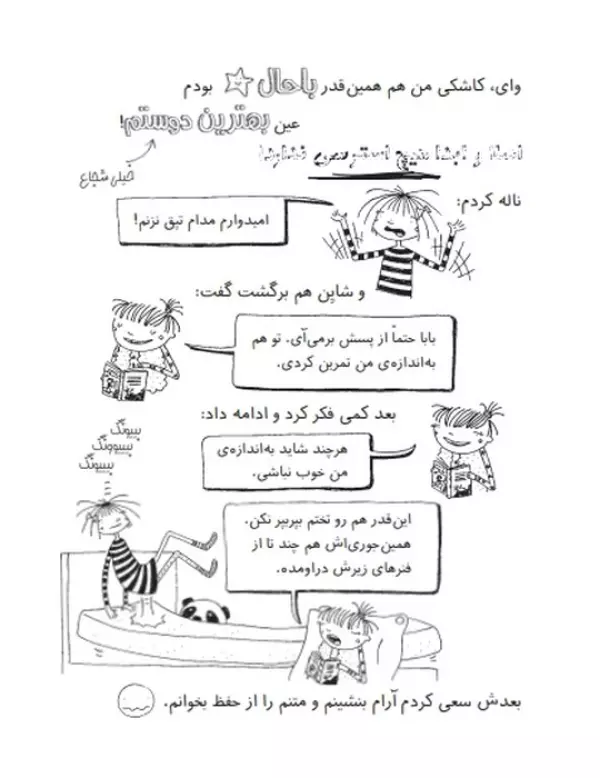 وای، کاشکی من هم همین‌قدر باحال بودم
عین بهترین دوستم!
خیلی شجاع
ناله کردم:
امیدوارم مدام تپق نزنم!
و شاپن هم برگشت گفت:
بابا حتماً از پسش برمی‌آی. تو هم
به‌اندازه‌ی من تمرین کردی.
بعد کمی فکر کرد و ادامه داد:
هرچند شاید به‌اندازه‌ی
من خوب نباشی.
بییونگ
بیییوونگ
بیییونگ
این‌قدر هم رو تختم بپربپر نکن.
همین‌جوری‌اش هم چند تا از
فنرهای زیرش دراومده.
بعدش سعی کردم آرام بنشینم و متنم را از حفظ بخوانم.